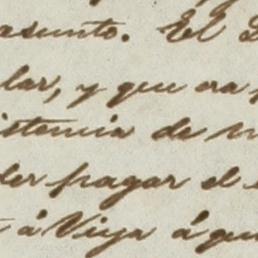 asunto. El
lar, y que era
istencia de
der pagar el
á Viya á que